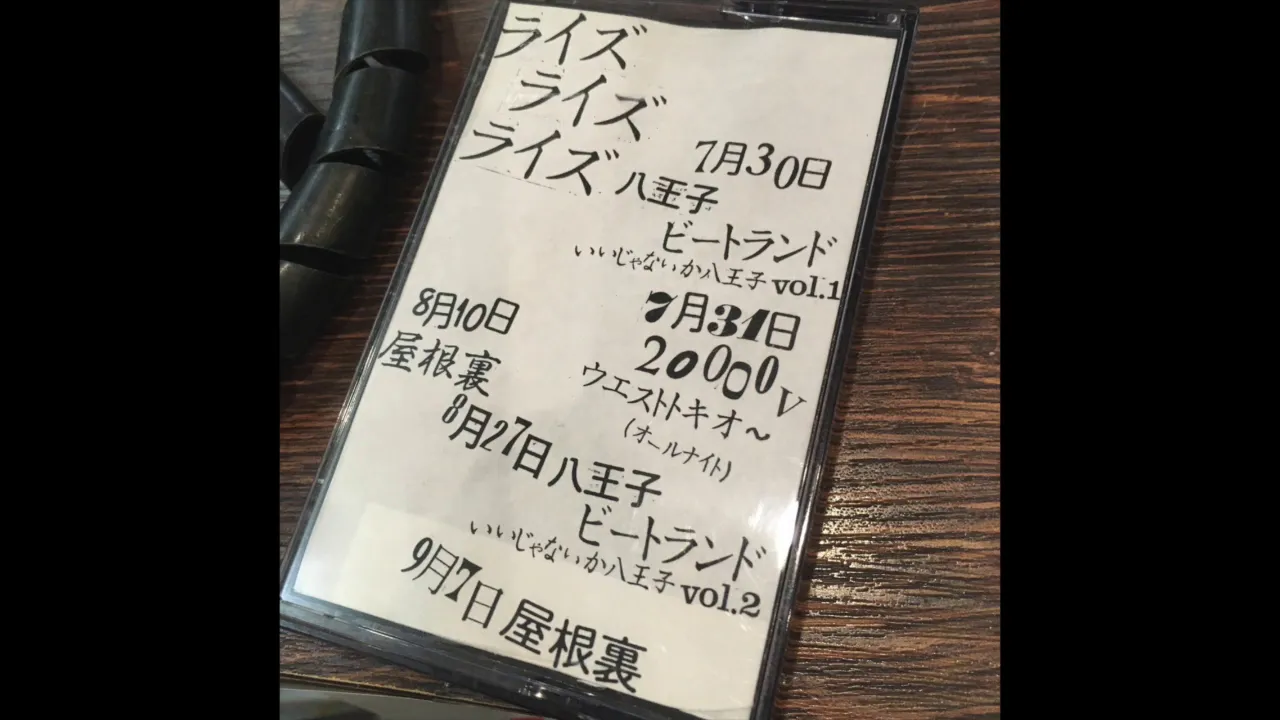 ライズ
ライズ
ライズ
7月30日
八王子
ビートランド
いいじゃないか八王子 vol.1
7月31日
20000V
ウエストトキオ~
(オールナイト)
8月10日
屋根裏
8月27日 八王子
ビートランド
いいじゃないか八王子 vol.2
9月7日 屋根裏